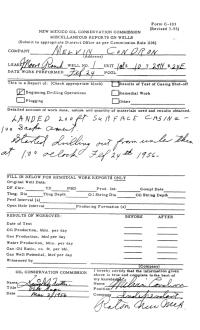 Form C-103
(Revised 3-55)
NEW MEXICO OIL CONSERVATION COMMISSION
MISCELLANEOUS REPORTS ON WELLS
(Submit to appropriate District Office as per Commission Rule 1106)
COMPANY MELVIN CONDRON
(Address)
LEASE WELL NO. 1 UNIT S 10 T 29N R 24E
DATE WORK PERFORMED Feb 24 POOL
This is a Report of: (Check appropriate block) Results of Test of Casing Shut-off
Beginning Drilling Operations Remedial Work
Plugging Other
Detailed account of work done, nature and quantity of materials used and results obtained.
LANDED 200 ft SURFACE CASING -
100 Sacks cement.
Started drilling out from under
at 1 00 oclock Feb 24 th 1956.
FILL IN BELOW FOR REMEDIAL WORK REPORTS ONLY
Original Well Data:
DF Elev. TD PBD Prod. Int. Compl Date
Tbng. Dia Tbng Depth Oil String Dia Oil String Depth
Perf Interval (s)
Open Hole Interval Producing Formation (s)
RESULTS OF WORKOVER: BEFORE AFTER
Date of Test
Oil Production, bbls. per day
Gas Production, Mcf per day
Water Production, bbls. per day
Gas-Oil Ratio, cu. ft. per bbl.
Gas Well Potential, Mcf per day
Witnessed by
(Company)
OIL CONSERVATION COMMISSION
I hereby certify that the information given
above is true and complete to the best of
my knowledge.
Name Name Melvin Condron
Title Position
Date Company
Raton New Mex